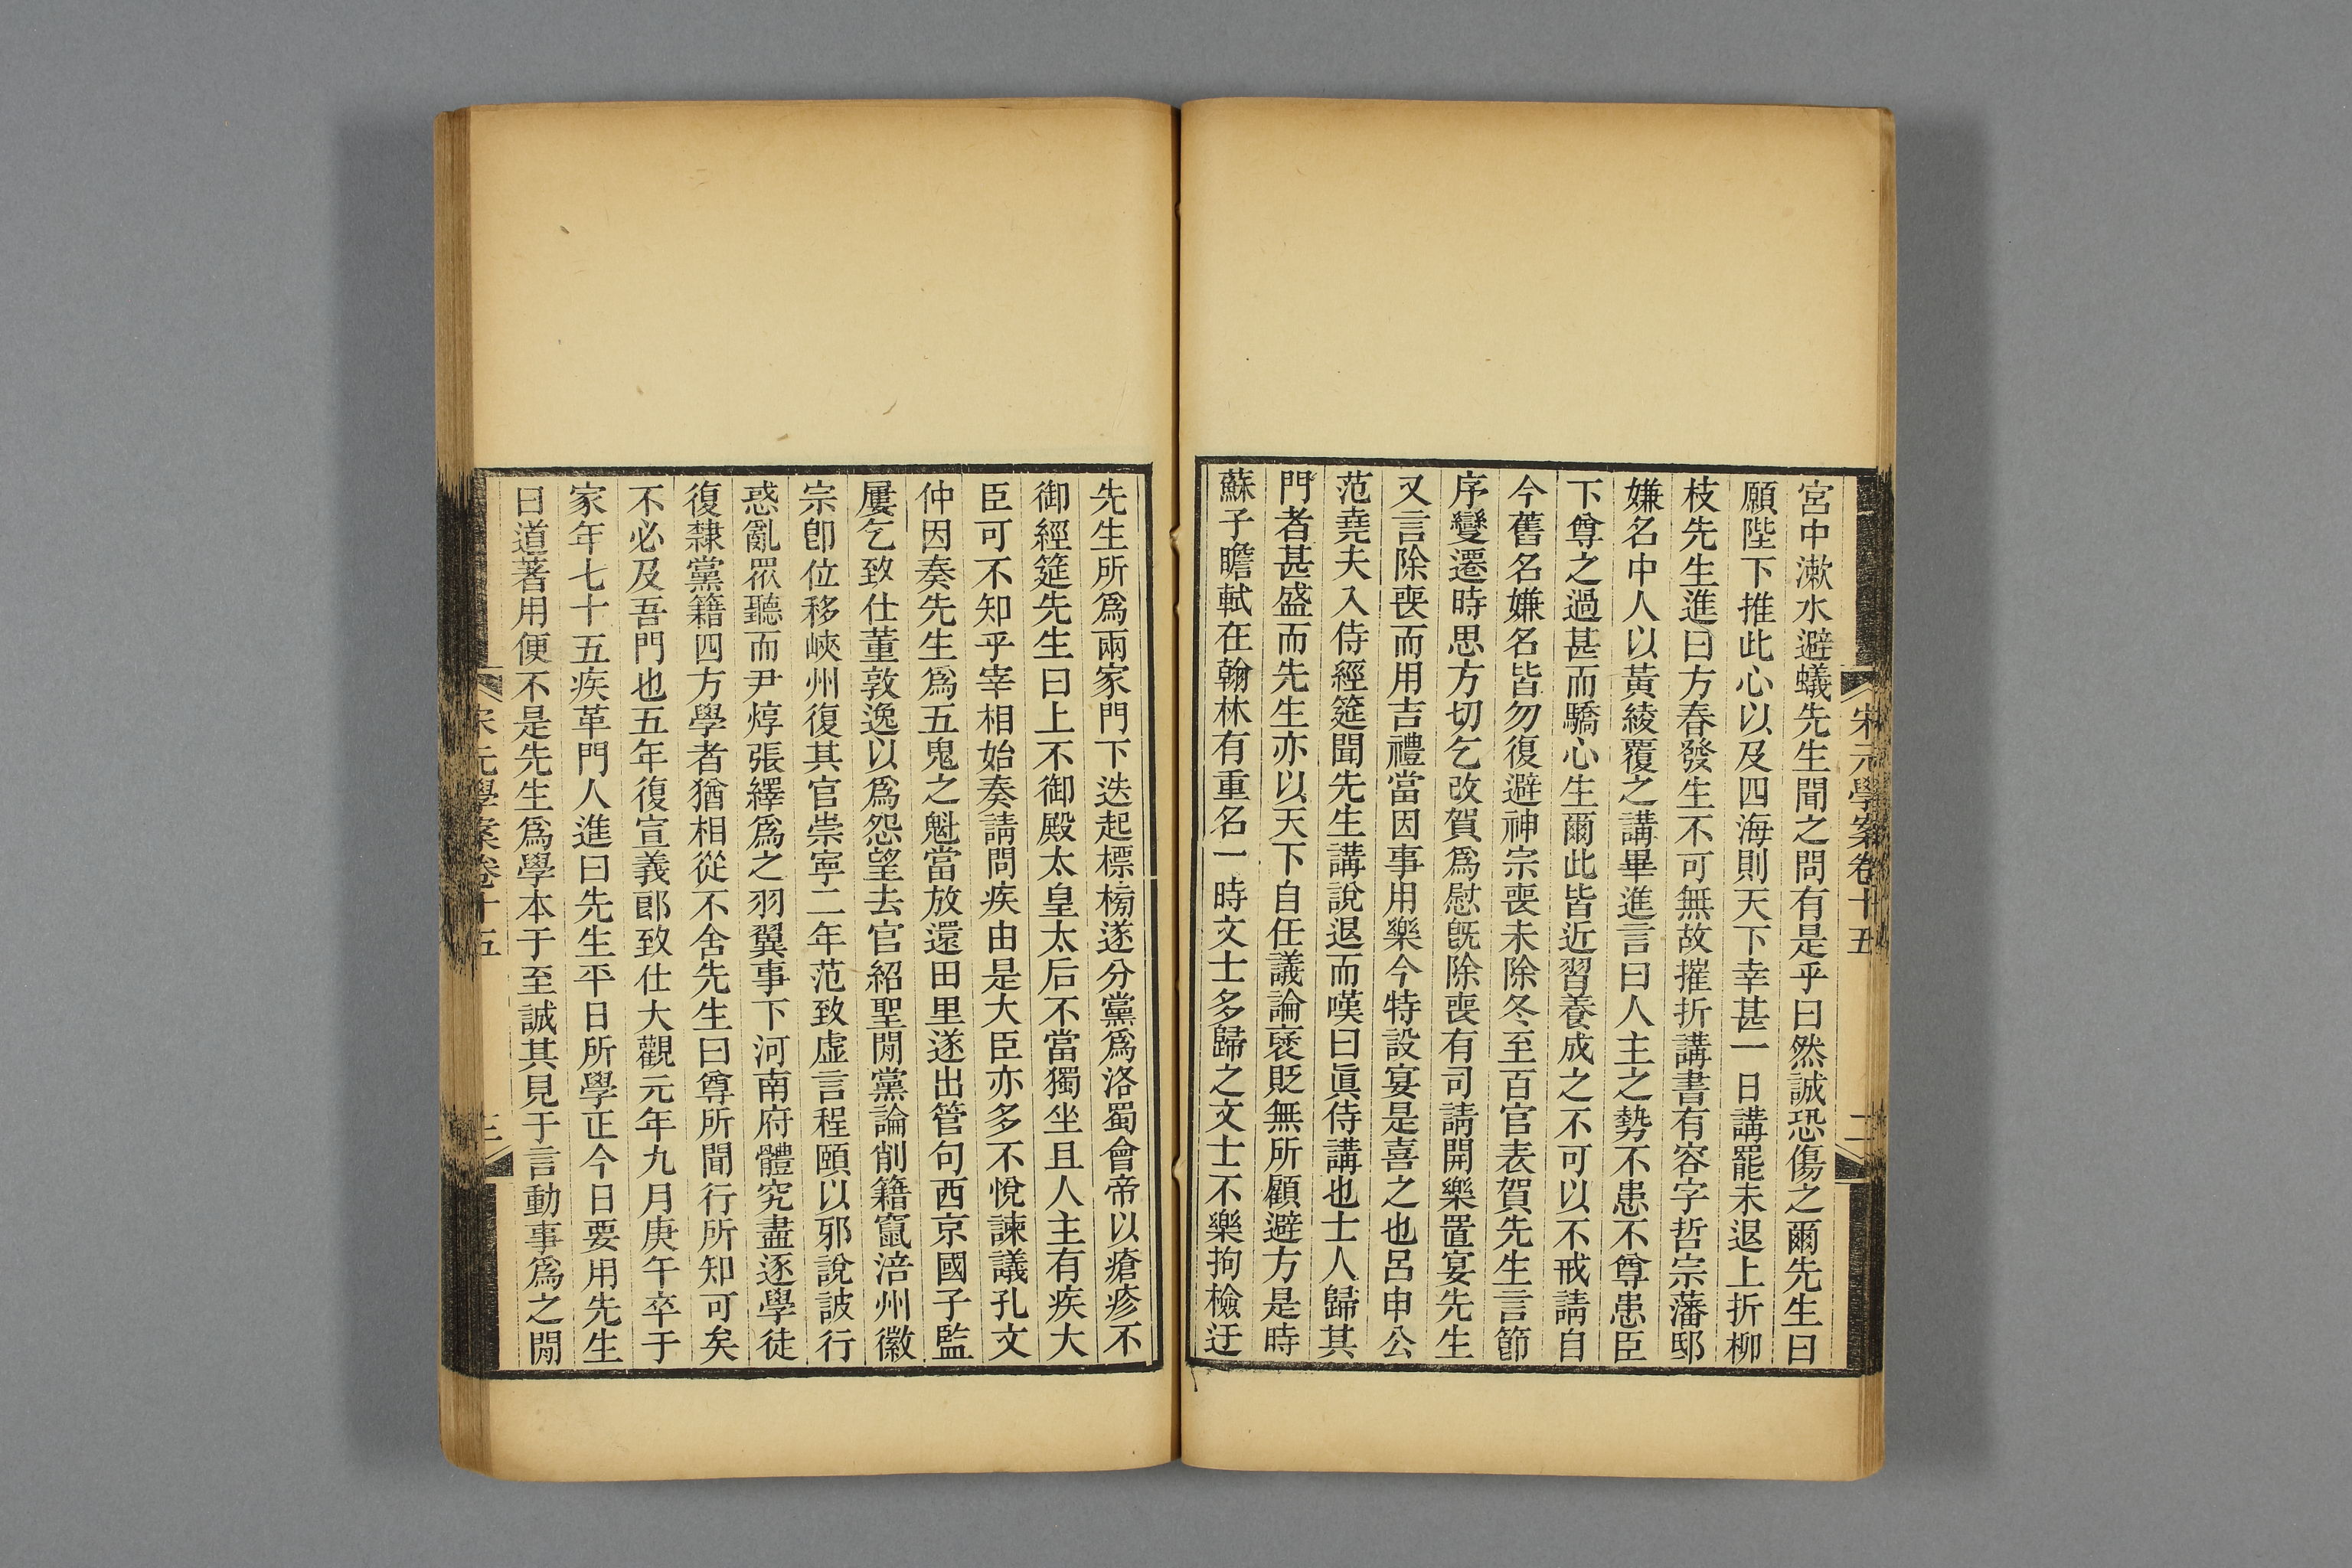 宋元學案卷十五
二
宮中漱水避蟻先生聞之問有是乎曰然誠恐傷之爾先生曰
願陛下推此心以及四海則天下幸甚一日講罷未退上折柳
枝先生進曰方春發生不可無故摧折講書有容字哲宗藩邸
嫌名中人以黃綾覆之講畢進言曰人主之勢不患不尊患臣
下尊之過甚而驕心生爾此皆近習養成之不可以不戒請自
今舊名嫌名皆勿復避神宗喪未除冬至百官表賀先生言節
序變遷時思方切乞改賀爲慰旣除喪有司請開樂置宴先生
又言除喪而用吉禮當因事用樂今特設宴是喜之也呂申公
范堯夫入侍經筵聞先生講說退而嘆曰眞侍講也士人歸其
門者甚盛而先生亦以天下自任議論褒貶無所顧避方是時
蘇子瞻軾在翰林有重名一時文士多歸之文士不樂拘檢迂
先生所爲兩家門下迭起標榜遂分黨爲洛蜀會帝以瘡疹不
御經筵先生曰上不御殿太皇太后不當獨坐且人主有疾大
臣可不知乎宰相始奏請問疾由是大臣亦多不悅諫議孔文
仲因奏先生爲五鬼之魁當放還田里遂出管句西京國子監
屢乞致仕董敦逸以爲怨望去官紹聖閒黨論削籍竄涪州徽
宗卽位移峽州復其官崇寧二年范致虛言程頤以邪說詖行
惑亂眾聽而尹焞張繹爲之羽翼事下河南府體究盡逐學徒
復隸黨籍四方學者猶相從不舍先生曰尊所聞行所知可矣
不必及吾門也五年復宣義郎致仕大觀元年九月庚午卒于
家年七十五疾革門人進曰先生平日所學正今日要用先生
曰道著用便不是先生爲學本于至誠其見于言動事爲之閒
宋元學案卷十五
三